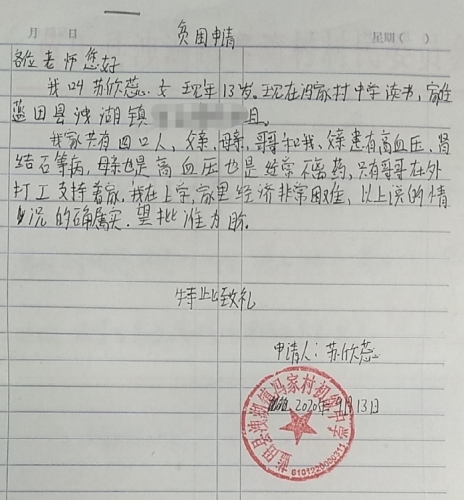 月 日 星期( )
贫困申请
各位老师您好
我叫苏欣蕊. 女 现年13岁. 现在冯家村中学读书, 家住
蓝田县洩湖镇 组.
我家共有四口人, 父亲, 母亲, 哥哥和我、父亲患有高血压, 肾
结石等病, 母亲也是高血压也是经常不离药, 只有哥哥在外
打工支持着家. 我在上学, 家里经济非常困难, 以上谈的情
况的确属实. 望批准为盼.
特此致礼
申请人: 苏欣蕊
2020年9月13日
蓝田县洩湖镇冯家村初级中学